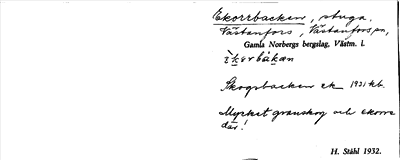 Ekorrbacken, stuga.
Västanfors, Västanfors sn,
Gamla Norbergs bergslag, Västm. l.
Skogsbacken ek 1931 kb.
Mycket granskog och ekorre
där!
H. Ståhl 1932.